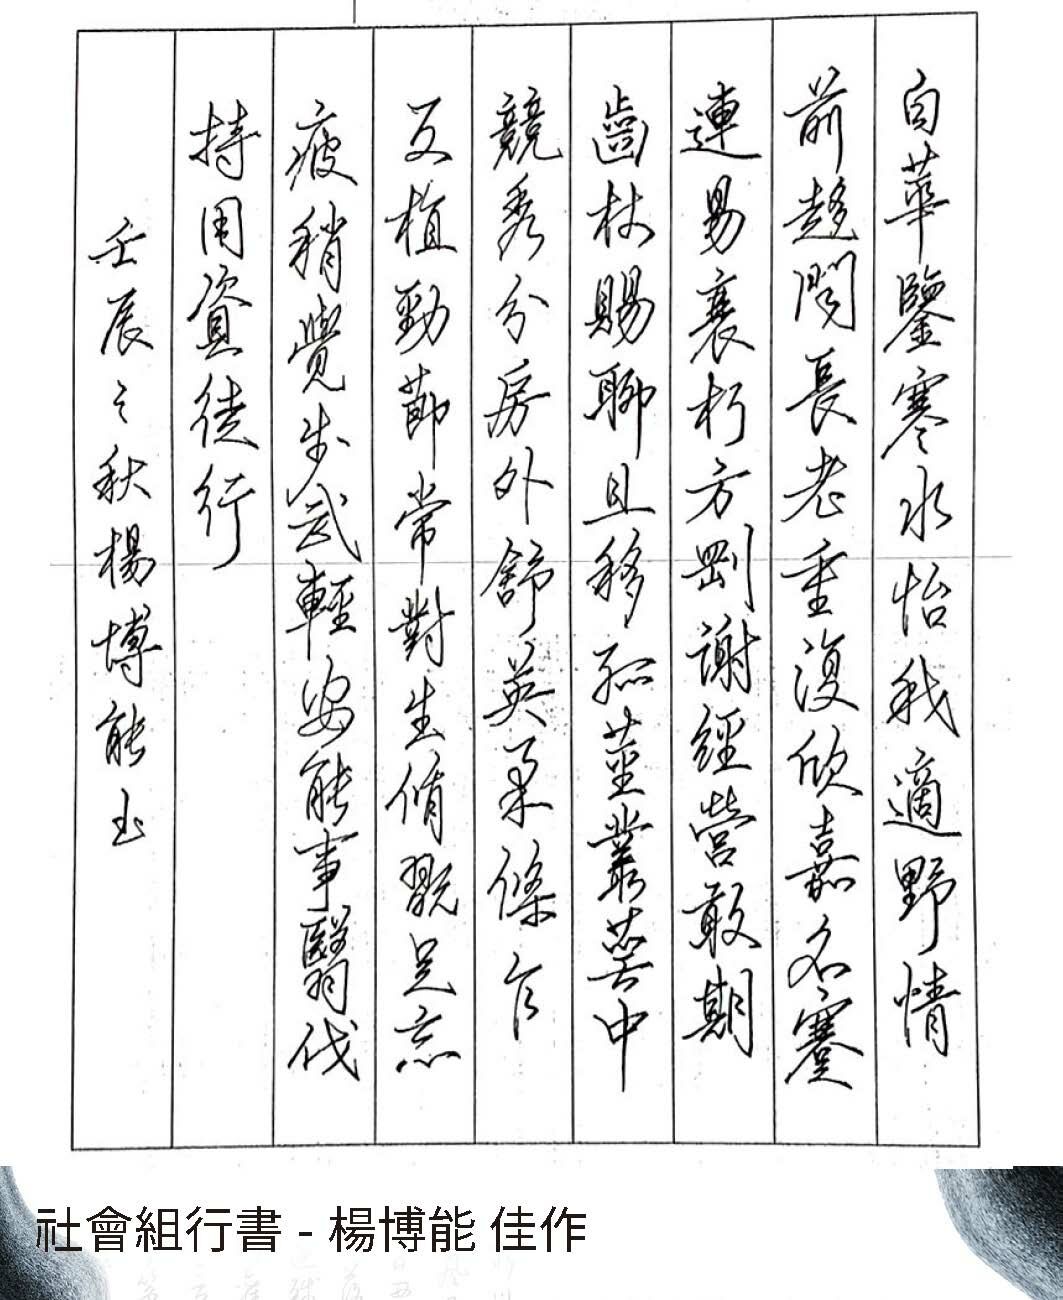 白華鑒寒水怡我適野情
前趨問長老重復欣嘉名蹇
連易衰朽方剛謝經營敢期
齒杖賜聊且移孤莖叢萼中
競秀分房外舒英柔條乍
反植勁節常對生脩翫足忘
疲稍覺步武輕安能事翳伐
持用資徒行
壬辰之秋楊博能書
社會組行書 - 楊博能 佳作